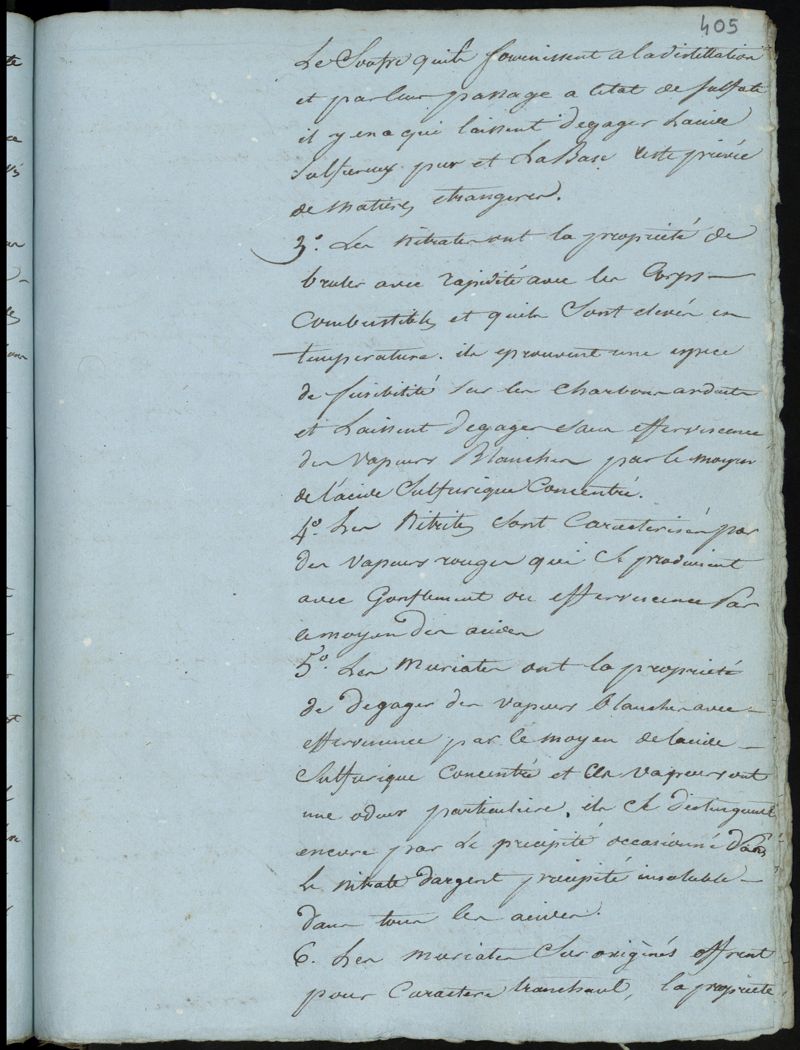 405
Le Soufre quils fournissent a la distillation
et par leur passage a letat de sulfate
il y en a qui laissent degager lacide
Sulfureux pur et La Base reste privée
de matieres etrangeres.
3°. Les nitrates ont la propriété de
bruler avec rapidité avec les Corps
Combustibles et quils sont elevés en
temperature. ils eprouvent une espece
de fusibilité sur les charbons ardents
et Laissent degager sans effervescence
des vapeurs Blanches par le moyen
de lacide Sulfurique Concentré.
4°. Les Nitrites sont Caracterisés par
des vapeurs rouges qui se produisent
avec Gonflement ou effervescence Par
le moyen des acides
5°. Les Muriates ont la propriété
de degager des vapeurs blanches avec
effervessence par le moyen de lacide
Sulfurique Concentré et Ces vapeurs ont
une odeur particuliere. ils se distinguent
encore par Le precipité occasionné dans
le nitrate dargent precipité insoluble
dans tous les acides.
6. Les muriates Sur oxigénés offrent
pour Caractere tranchant, la propriété